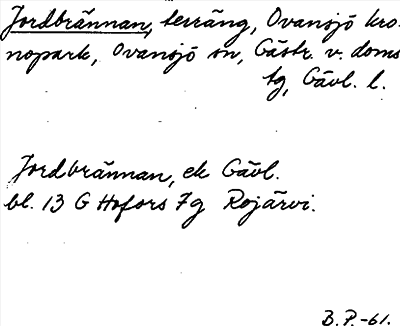 Jordbrännan, terräng, Ovansjö kro-
nopark, Ovansjö sn, Gästr. v. doms
tg, Gävl. l.
Jordbrännan, ek Gävl.
bl. 13 G Hofors 7g Rojärvi.
B.P.-61.